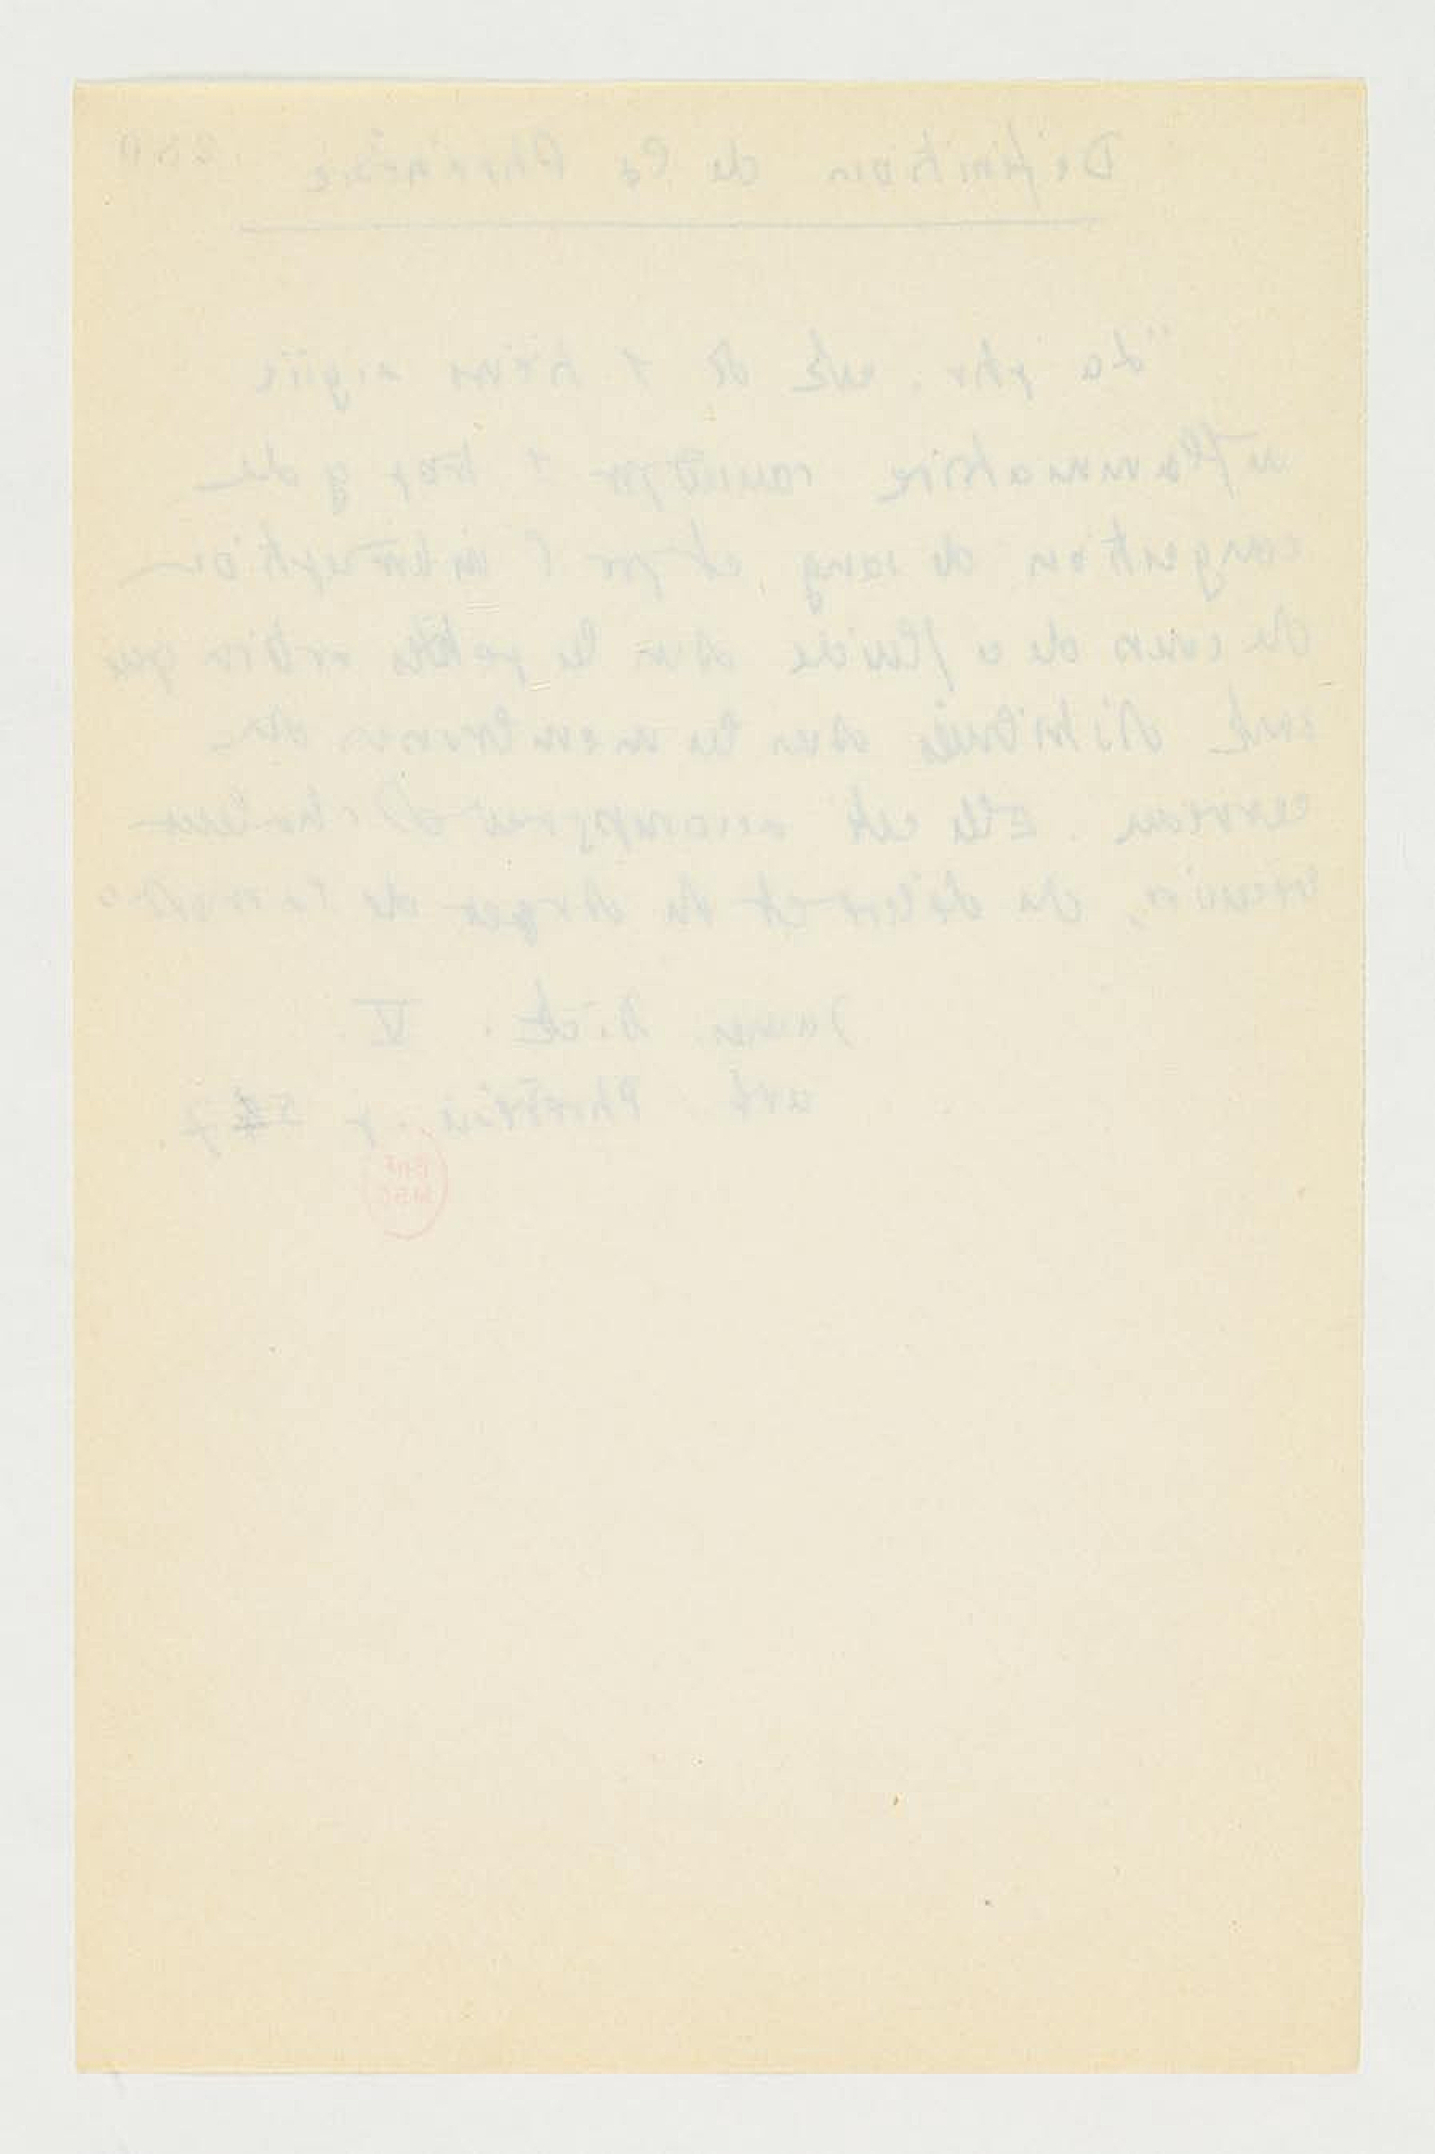 Définition de la Phrénésie 280
"La phr. est 1 aigüe
inflammatoire causée par 1 trop gde
congestion de sang et par l'interruption
du cours de ce fluide dans les petits qui
sont distribués dans les membranes du
cerveau. Elle est accompagnée de chaleur
du délire et du de
James Dict. V
art. Phrénésie p 547
BnF
MSS